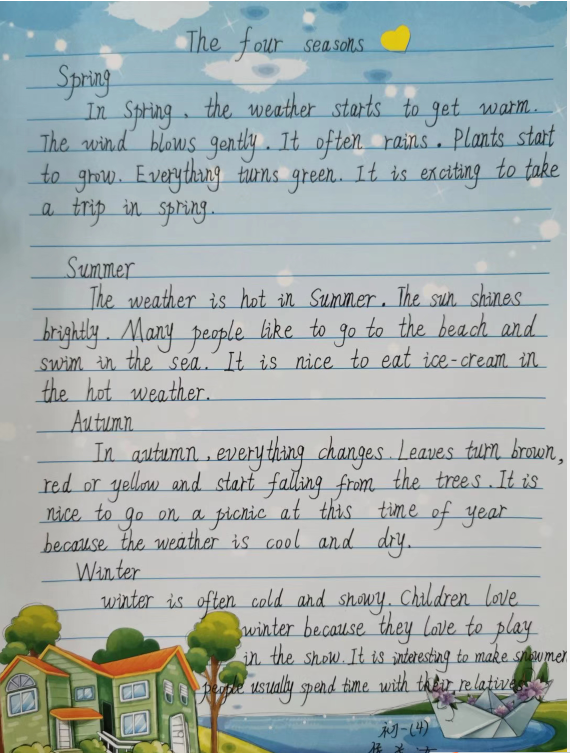 The four seasons
Spring
In Spring, the weather starts to get warm.
The wind blows gently. It often rains. Plants start
to grow. Everything turns green. It is exciting to take
a trip in spring.
Summer
The weather is hot in Summer. The sun shines
brightly. Many people like to go to the beach and
swim in the sea. It is nice to eat ice-cream in
the hot weather.
Autumn
In autumn, everything changes. Leaves turn brown,
red or yellow and start falling from the trees. It is
nice to go on a picnic at this time of year
because the weather is cool and dry.
Winter
winter is often cold and snowy. Children love
winter because they love to play
in the snow. It is interesting to make snowmen
people usually spend time with their relatives.
初一(4)